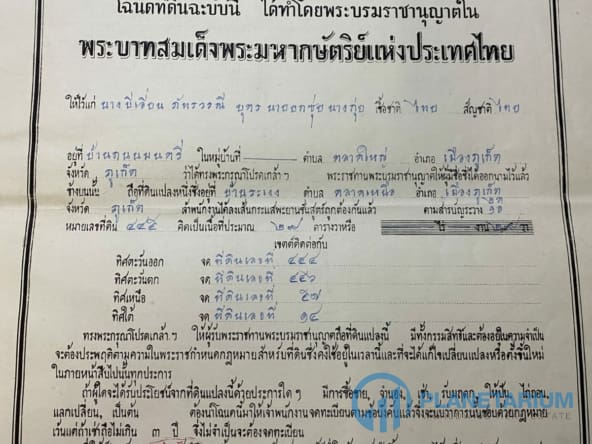 โฉนดที่ดินฉะบับนี้ ได้ทำโดยพระบรมราชานุญาตใน
พระบาทสมเด็จพระมหากษัตริย์แห่งประเทศไทย
ให้ไว้แก่ นาง ภัทรวรณี บุตร เชื้อชาติ ไทย สัญชาติ ไทย
อยู่ที่ บ้านถนนมนตรี ในหมู่บ้านที่ ตำบล ตลาดใหญ่ อำเภอ เมืองภูเก็ต
จังหวัด ภูเก็ต ว่าได้ทรงพระกรุณาโปรดเกล้าฯ พระราชทานพระบรมราชานุญาตให้ผู้มีชื่อซึ่งได้ออกนามไว้แล้ว
ข้างบนนั้น ถือที่ดินแปลงหนึ่งซึ่งอยู่ บ้านระแงง ตำบล ตลาดเหนือ อำเภอ เมืองภูเก็ต
จังหวัด ภูเก็ต เจ้าพนักงานได้ลงเส้นกระแสพระยานชันสูตรถูกต้องกันแล้ว ตามสำรับัญระวาง
หมายเลขที่ดิน ๔๔๕ คิดเป็นเนื้อที่ประมาณ ๒๗ ตารางวาหรือ ไร่ งาน วา
เขตต์ติดต่อกับ
ทิศตะวันออก จด ที่ดินเลขที่ ๔๔๔
ทิศตะวันตก จด ที่ดินเลขที่ ๔๔๖
ทิศเหนือ จด ที่ดินเลขที่ ๕๗
ทิศใต้ จด ที่ดินเลขที่ ๑๔
ทรงพระกรุณาโปรดเกล้าฯ ให้ผู้รับพระราชทานพระบรมราชานุญาตถือที่ดินแปลงนี้ มีทั้งกรรมสิทธิ์และต้องอยู่ในความจำเป็น
จะต้องประพฤติตามความในพระราชกำหนดกฎหมายสำหรับที่ดินซึ่งคงใช้อยู่ในเวลานี้และที่จะได้แก้ไขเปลี่ยนแปลงหรือตั้งขึ้นใหม่
ในภายหน้าสืบไปนั้นทุกประการ
ถ้าผู้ใดจะได้รับประโยชน์จากที่ดินแปลงนี้ด้วยประการใด ๆ มีการซื้อขาย, จำนอง,
แลกเปลี่ยน, เป็นต้น ต้องนำโฉนดนี้มาให้เจ้าพนักงานจดทะเบียน
เว้นแต่ถ้าเช่าถือไม่เกิน ๓ ปี จึงไม่จำเป็นจะต้องจดทะเบียน
PLANETARIUM
ESTATE